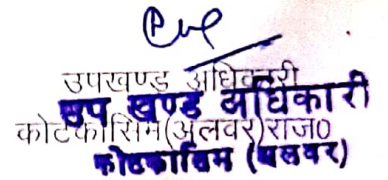 उपखण्ड अधिकारी
उप खण्ड अधिकारी
कोटकासिम(अलवर)राज0
कोटकासिम (अलवर)